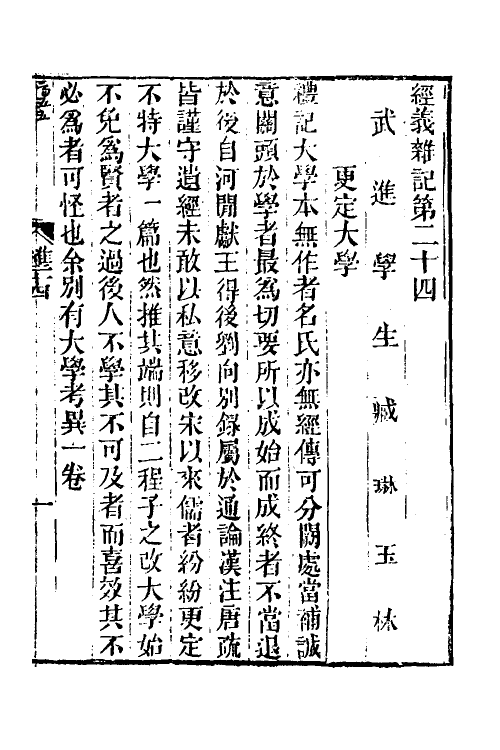 經義雜記第二十四
武進學生臧琳玉林
更定大學
禮記大學本無作者名氏亦無經傳可分闕處當補誠
意關頭於學者最爲切要所以成始而成終者不當退
於後自河閒獻王得後劉向別錄屬於通論漢注唐疏
皆謹守遺經未敢以私意移改宋以來儒者紛紛更定
不特大學一篇也然推其端則自二程子之改大學始
不免爲賢者之過後人不學其不可及者而喜效其不
必爲者可怪也余別有大學考異一卷